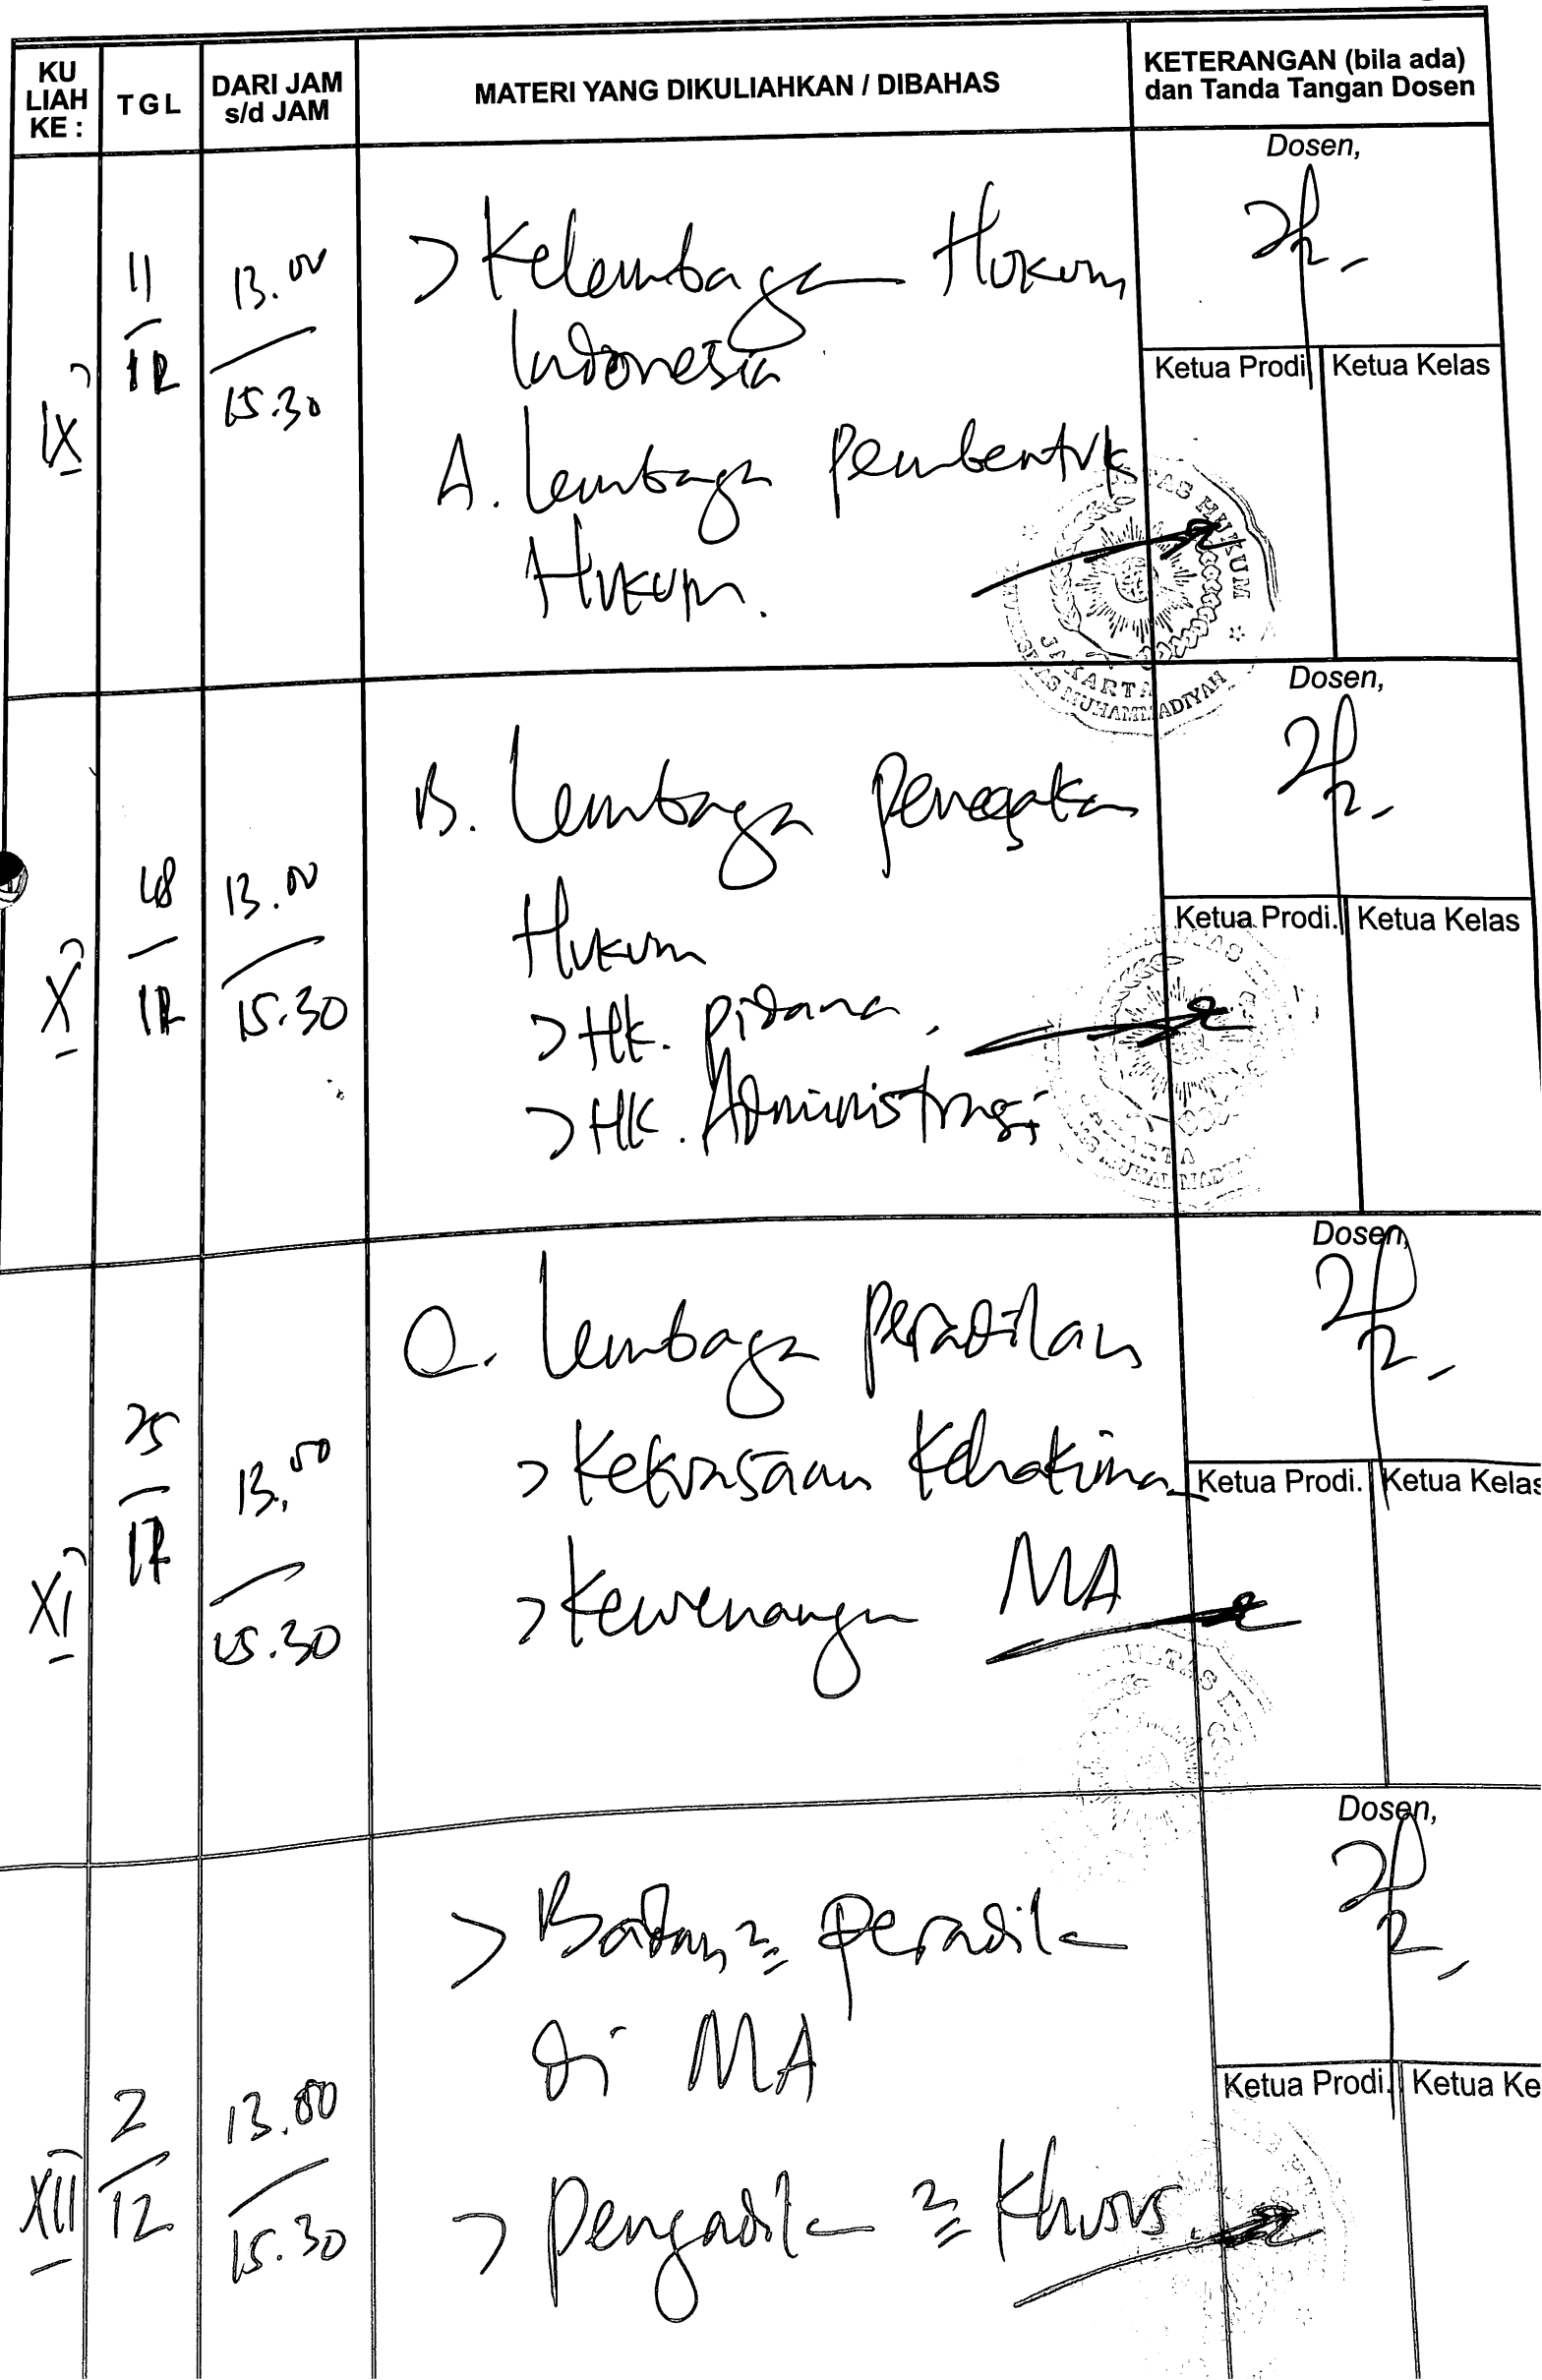 KU LIAH KE :
TGL
DARI JAM s/d JAM
MATERI YANG DIKULIAHKAN / DIBAHAS
KETERANGAN (bila ada) dan Tanda Tangan Dosen
IX
11/12
13.00
15.30
> Kelembagaan Hukum
Indonesia
A. Lembaga Pembentuk
Hukum.
Dosen,
Ketua Prodi
Ketua Kelas
HUKUM
JAKARTA
MUHAMMADIYAH
X
18/12
13.00
15.30
B. Lembaga Penegakan
Hukum
> Hk. Pidana
> Hk. Administrasi
Dosen,
Ketua Prodi.
Ketua Kelas
XI
25/12
13.00
15.30
C. Lembaga Peradilan
> Kekuasaan Kehakiman
> Kewenangan MA
Dosen,
Ketua Prodi.
Ketua Kelas
XII
2/12
13.00
15.30
> Badan2 Peradilan
di MA
> Pengadilan2 Khusus
Dosen,
Ketua Prodi.
Ketua Ke